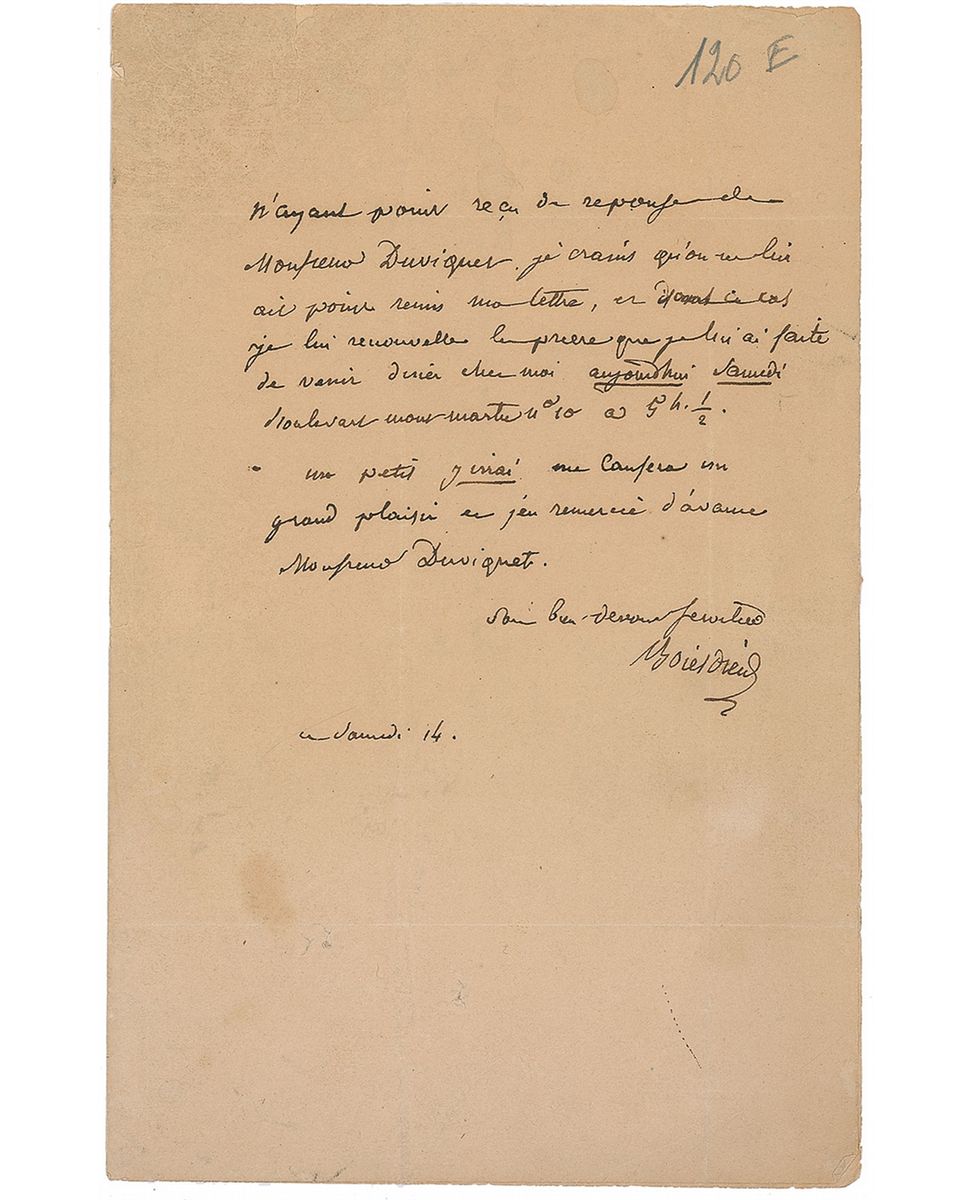 120 F
N'ayant point reçu de reponse de
Monsieur Duviquet, je crains qu'on ne lui
ait point remis ma lettre, et dans ce cas
je lui renouvelle la priere que je lui ai faite
de venir diner chez moi aujourdhui Samedi
Boulevart mont-martre n° 10 a 5 h. 1/2.
un petit j'irai me causera un
grand plaisir et j'en remercie d'avance
Monsieur Duviquet.
Son bien devoué serviteur
Boieldieu
ce Samedi 14.